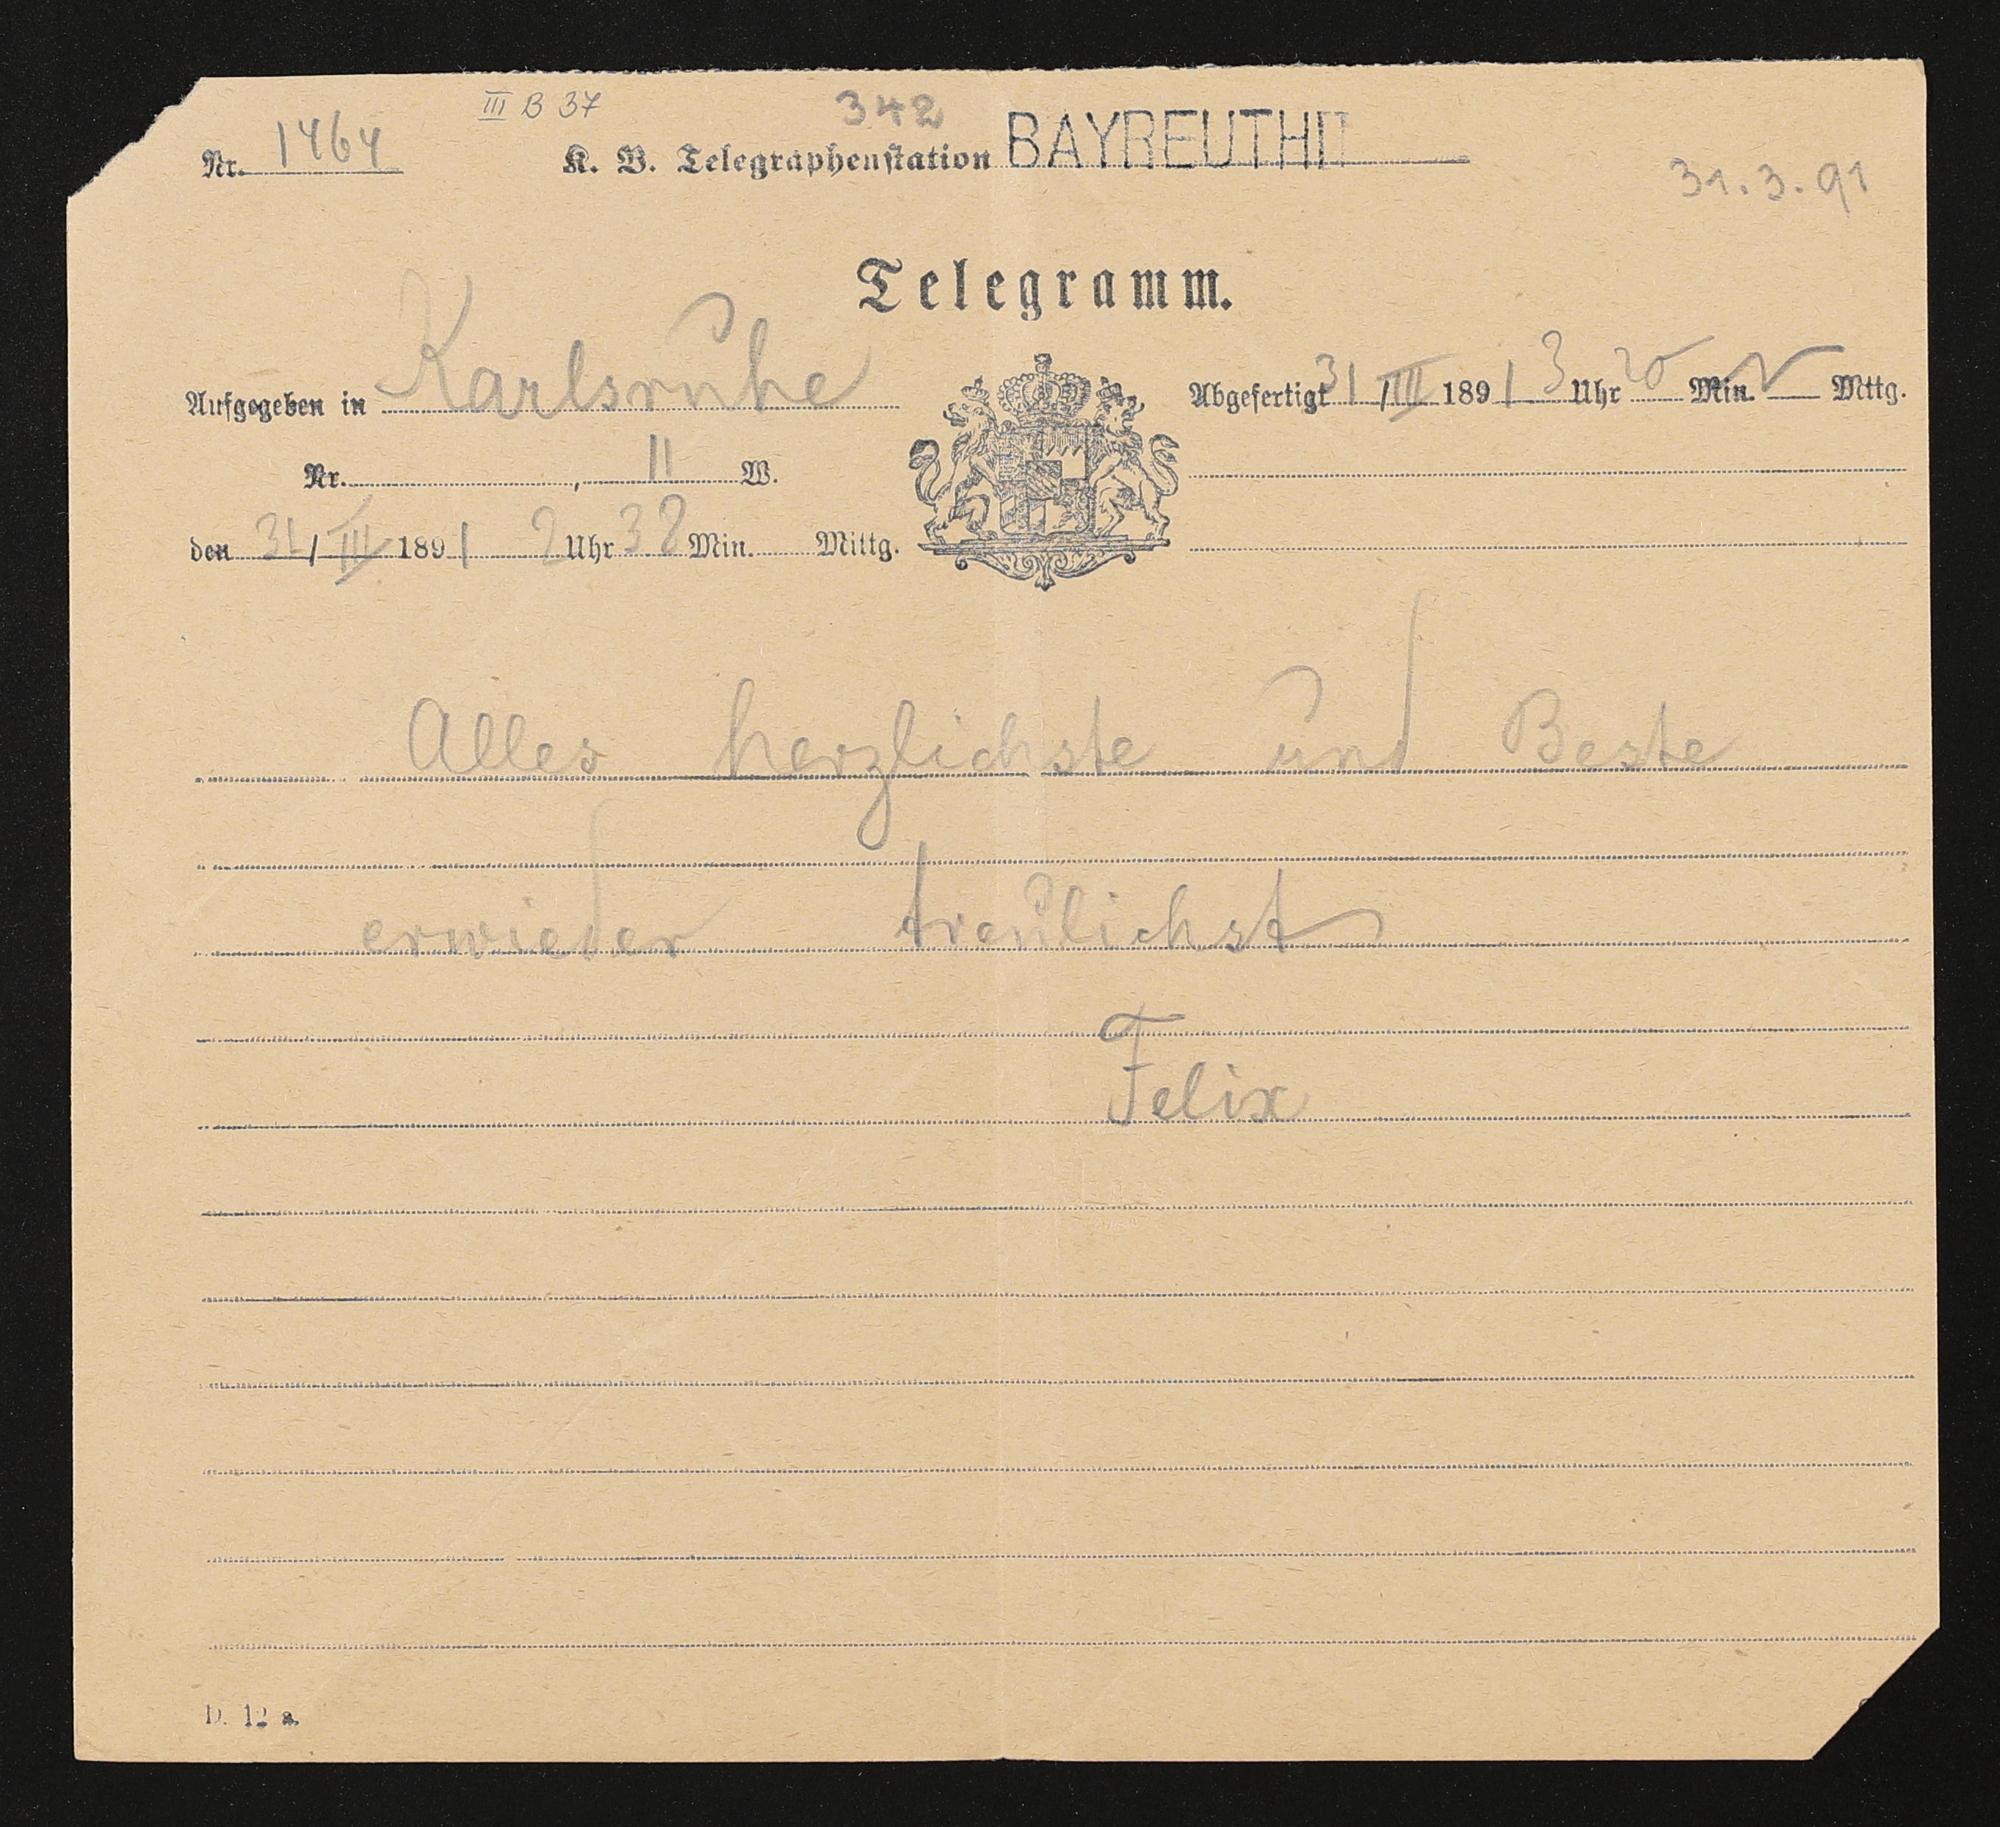 III B 37
342
Nr. 1464 K. B. Telegraphenstation BAYREUTH II
31.3.91
Telegramm.
Aufgegeben in Karlsruhe
Abgefertigt 31/III 1891 3 Uhr 20 Min. N Mttg.
Nr. , 11 W.
den 31/III 1891 2 Uhr 38 Min. Mittg.
Alles herzlichste und Beste
erwieder treulichst
Felix
D. 12 a.